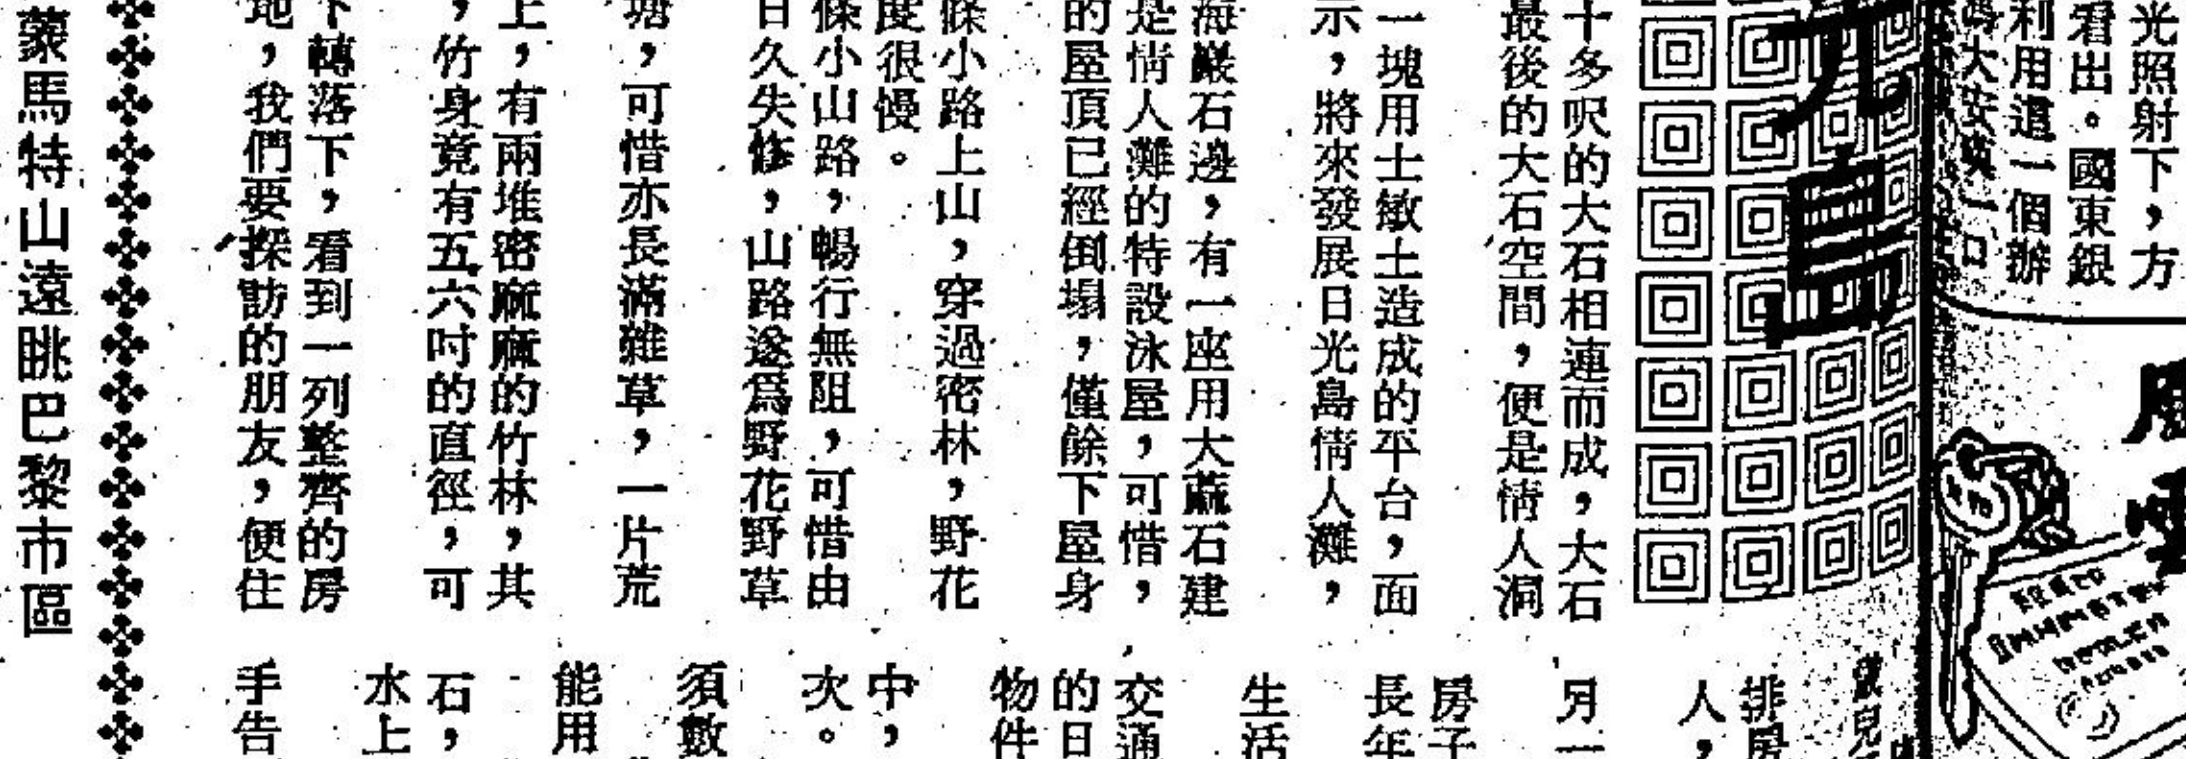 光照射下，方
看出。國東銀
利用這一個辦
光島
十多呎的大石相連而成，大石
最後的大石空間，便是情人洞
一塊用士敏土造成的平台，面
示，將來發展日光島情人灘，
海巖石邊，有一座用大蔴石建
是情人灘的特設泳屋，可惜，
的屋頂已經倒塌，僅餘下屋身
條小路上山，穿過密林，野花
度很慢。
條小山路，暢行無阻，可惜由
日久失修，山路遂爲野花野草
塘，可惜亦長滿雜草，一片荒
上，有兩堆密麻麻的竹林，其
，竹身竟有五六吋的直徑，可
下轉落下，看到一列整齊的房
地，我們要探訪的朋友，便住
排房
人，
月一
房子
長年
生活
交通
的日
物件
中，
次。
須數
能用
石，
水上
手告
蒙馬特山遠眺巴黎市區